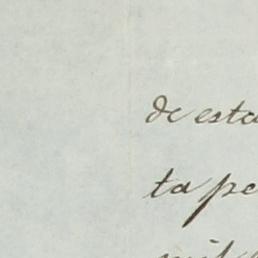 de esta
ta pe